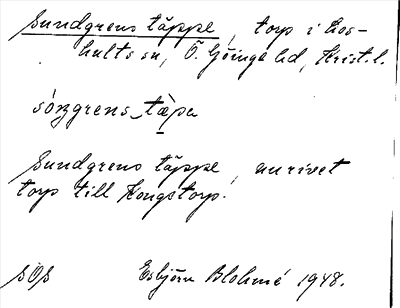 Sundgrens täppe, torp i Loshults
hults sn, Ö. Göinge hd, Krist. l.
sóngrens_tæpa
Sundgrens täppe, nu rivet
torp till Kongstorp.
SOS Esbjörn Blohmé 1948.